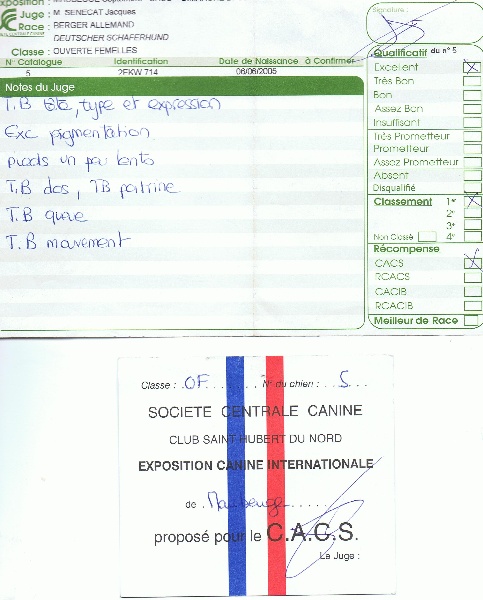 Juge : M. SENECAT Jacques
Race : BERGER ALLEMAND
DEUTSCHER SCHAFERHUND
Classe : OUVERTE FEMELLES
N° Catalogue Identification Date de Naissance à Confirmer
5 2FKW 714 06/06/2005
Notes du Juge
T.B tête, type et expression
Exc pigmentation
pieds un peu
T.B dos, TB poitrine
T.B queue
T.B mouvement
Signature :
Qualificatif du n° 5
Excellent
Très Bon
Bon
Assez Bon
Insuffisant
Très Prometteur
Prometteur
Assez Prometteur
Absent
Disqualifié
Classement 1er
2e
3e
Non Classé 4e
Récompense
CACS
RCACS
CACIB
RCACIB
Meilleur de Race
Classe : OF N° du chien : 5
SOCIETE CENTRALE CANINE
CLUB SAINT HUBERT DU NORD
EXPOSITION CANINE INTERNATIONALE
de Maubeuge
proposé pour le C.A.C.S.
Le Juge :